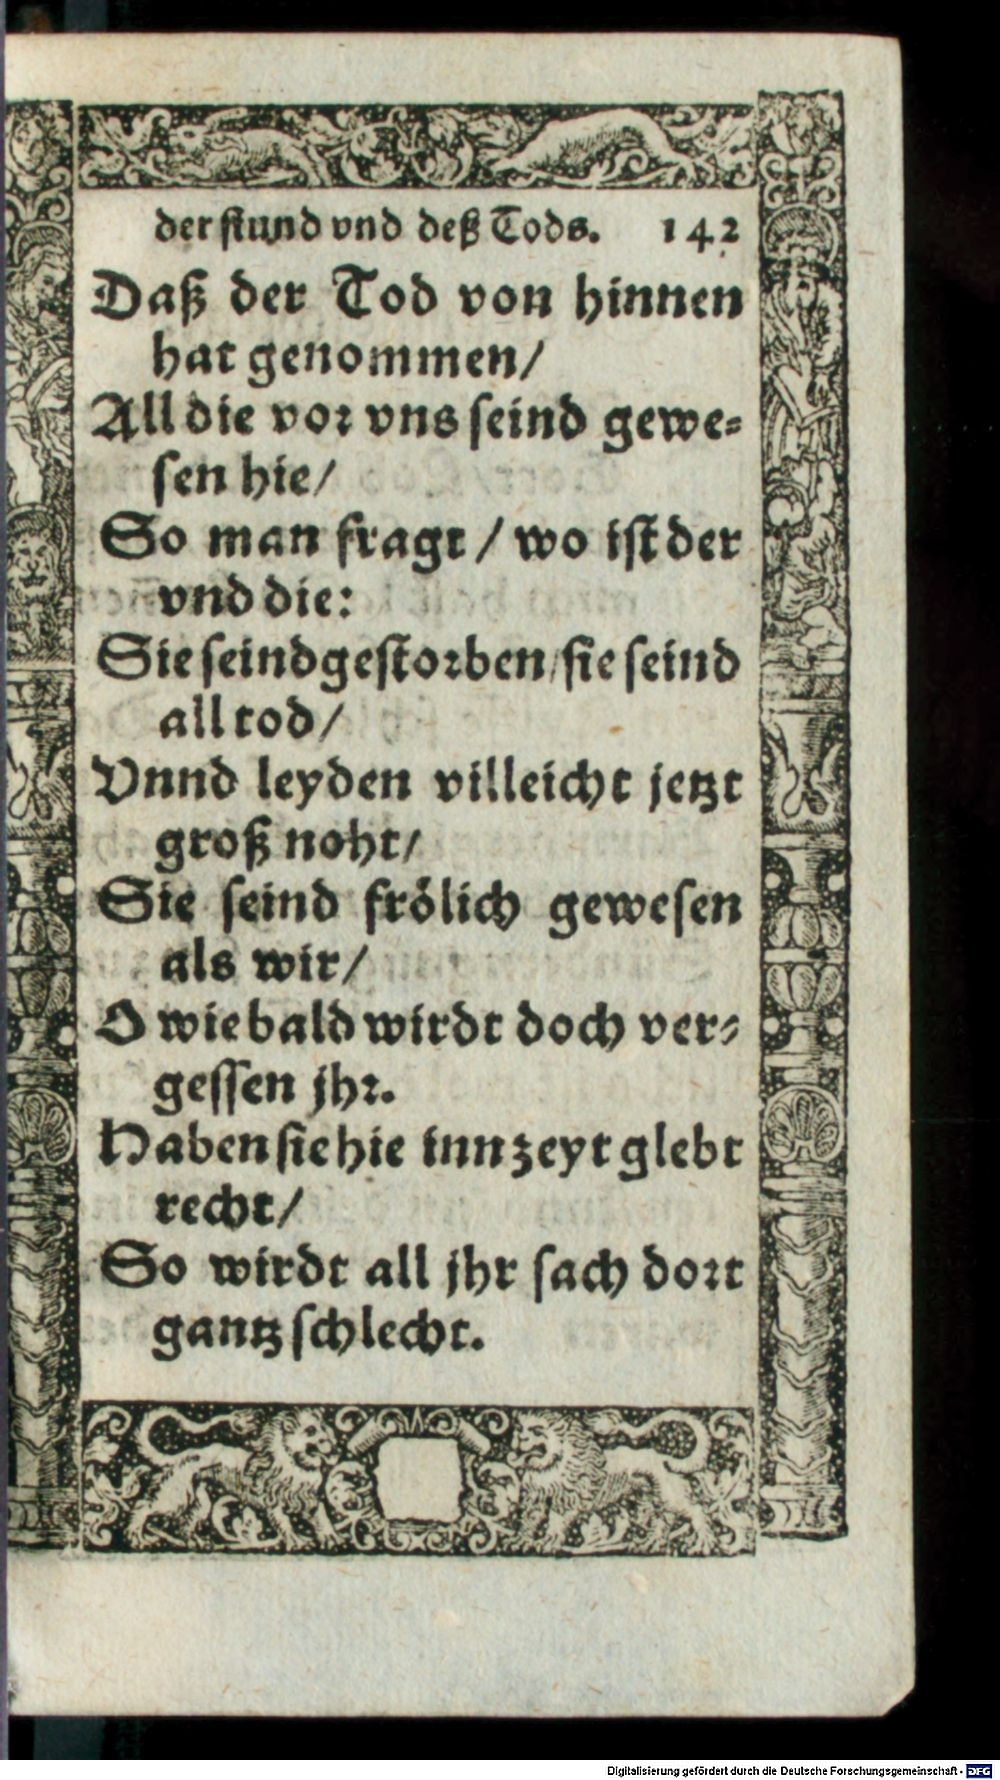 der stund vnd deß Tods. 142
Daß der Tod von hinnen
hat genommen/
All die vor vns seind gewe=
sen hie/
So man fragt / wo ist der
vnd die:
Sie seind gestorben/sie seind
all tod/
Vnnd leyden villeicht jetzt
groß noht/
Sie seind frölich gewesen
als wir/
O wie bald wirdt doch ver=
gessen jhr.
Haben sie hie inn zeyt glebt
recht/
So wirdt all jhr sach dort
gantz schlecht.
Digitalisierung gefördert durch die Deutsche Forschungsgemeinschaft - DFG